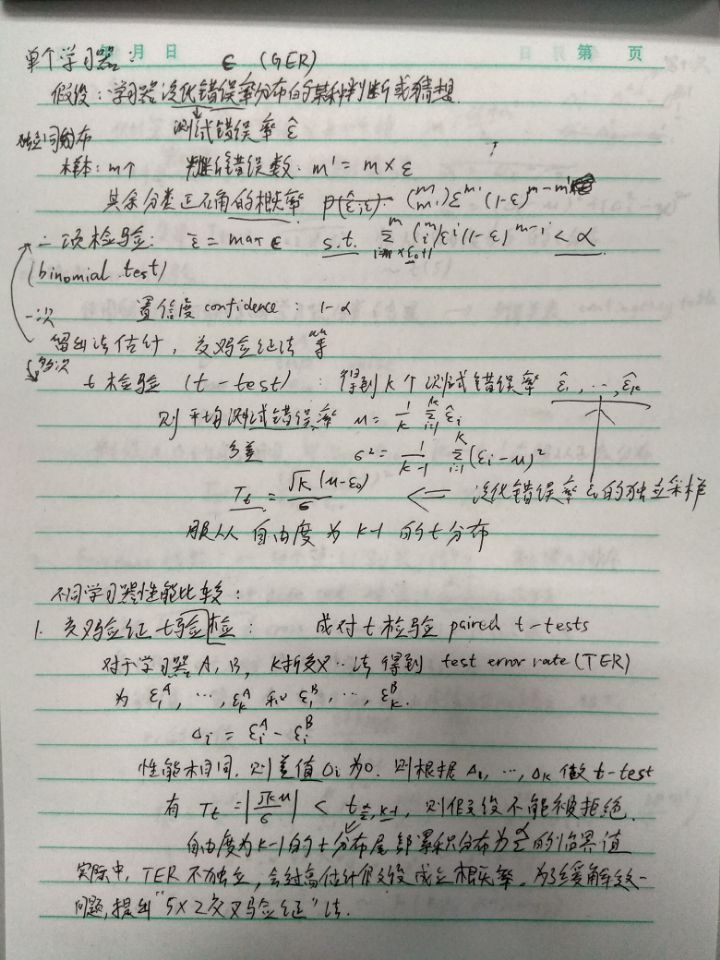 月 日 第 页
单个学习器: ϵ (GER)
假设:学习器泛化错误率分布的某种判断或猜想.
独立同分布 测试错误率 ε̂
样本: m个 判断错误数. m' = m × ε
其余分类正确的概率 (m m') ε^m' (1-ε)^m-m'
二项检验: ε̄ = max ϵ s.t. Σ (m i) ε^i (1-ε)^m-i < α
(binomial test)
置信度 confidence: 1-α
一次
留出法估计, 交叉验证法 等
多次
t 检验 (t-test): 得到 K 个测试错误率 ε̂₁, ⋯, ε̂k
则平均测试错误率 μ = 1/k Σ ε̂i
方差 σ² = 1/(k-1) Σ (εi-μ)²
Tt = √k (μ-ε₀)/σ ⇐ 泛化错误率 ε₀ 的独立采样
服从自由度为 k-1 的 t 分布
不同学习器性能比较:
1. 交叉验证 t 验检: 成对 t 检验 paired t-tests
对于学习器 A, B, K折交叉⋯法得到 test error rate (TER)
为 ε₁^A, ⋯, εk^A 和 ε₁^B, ⋯, εk^B.
Δi = εi^A - εi^B
性能相同, 则差值 Δi 为0. 则根据 Δ₁, ⋯, Δk 做 t-test
有 Tt = |√k μ/σ| < t α/2, k-1, 则假设不能被拒绝.
自由度为 k-1 的 t 分布尾部累积分布为 α/2 的临界值
实际中, TER 不独立, 会过高估计假设成立概率. 为缓解这一
问题, 提出 "5×2交叉验证" 法.